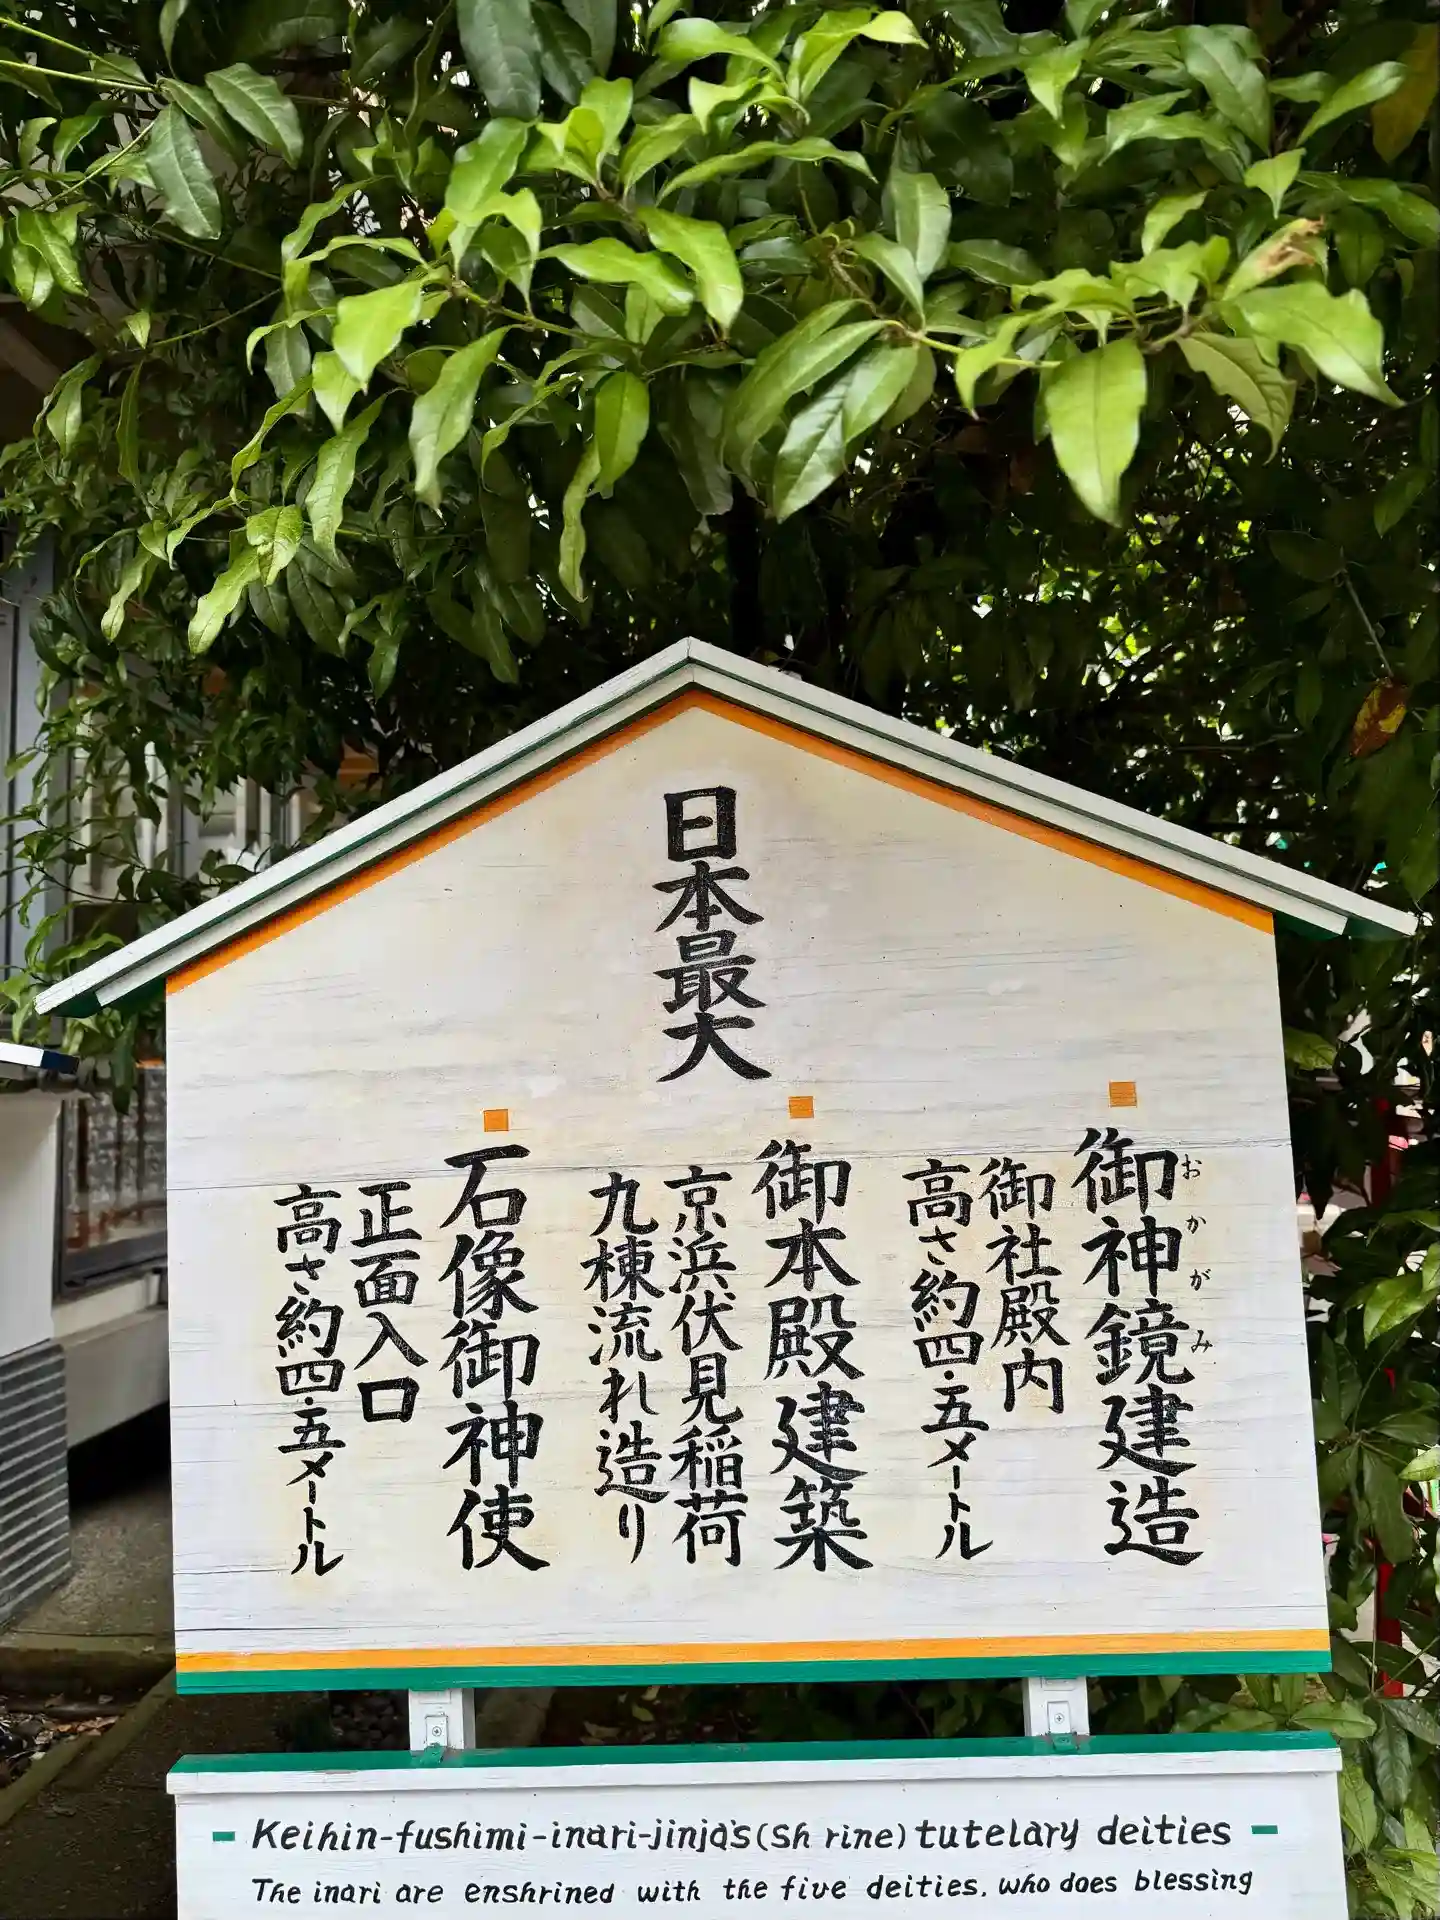 日本最大
御神鏡建造
おかがみ
御社殿内
高さ約四・五メートル
御本殿建築
京浜伏見稲荷
九棟流れ造り
石像御神使
正面入口
高さ約四・五メートル
Keihin-fushimi-inari-jinja's (Sh rine) tutelary deities
The inari are enshrined with the five deities, who does blessing